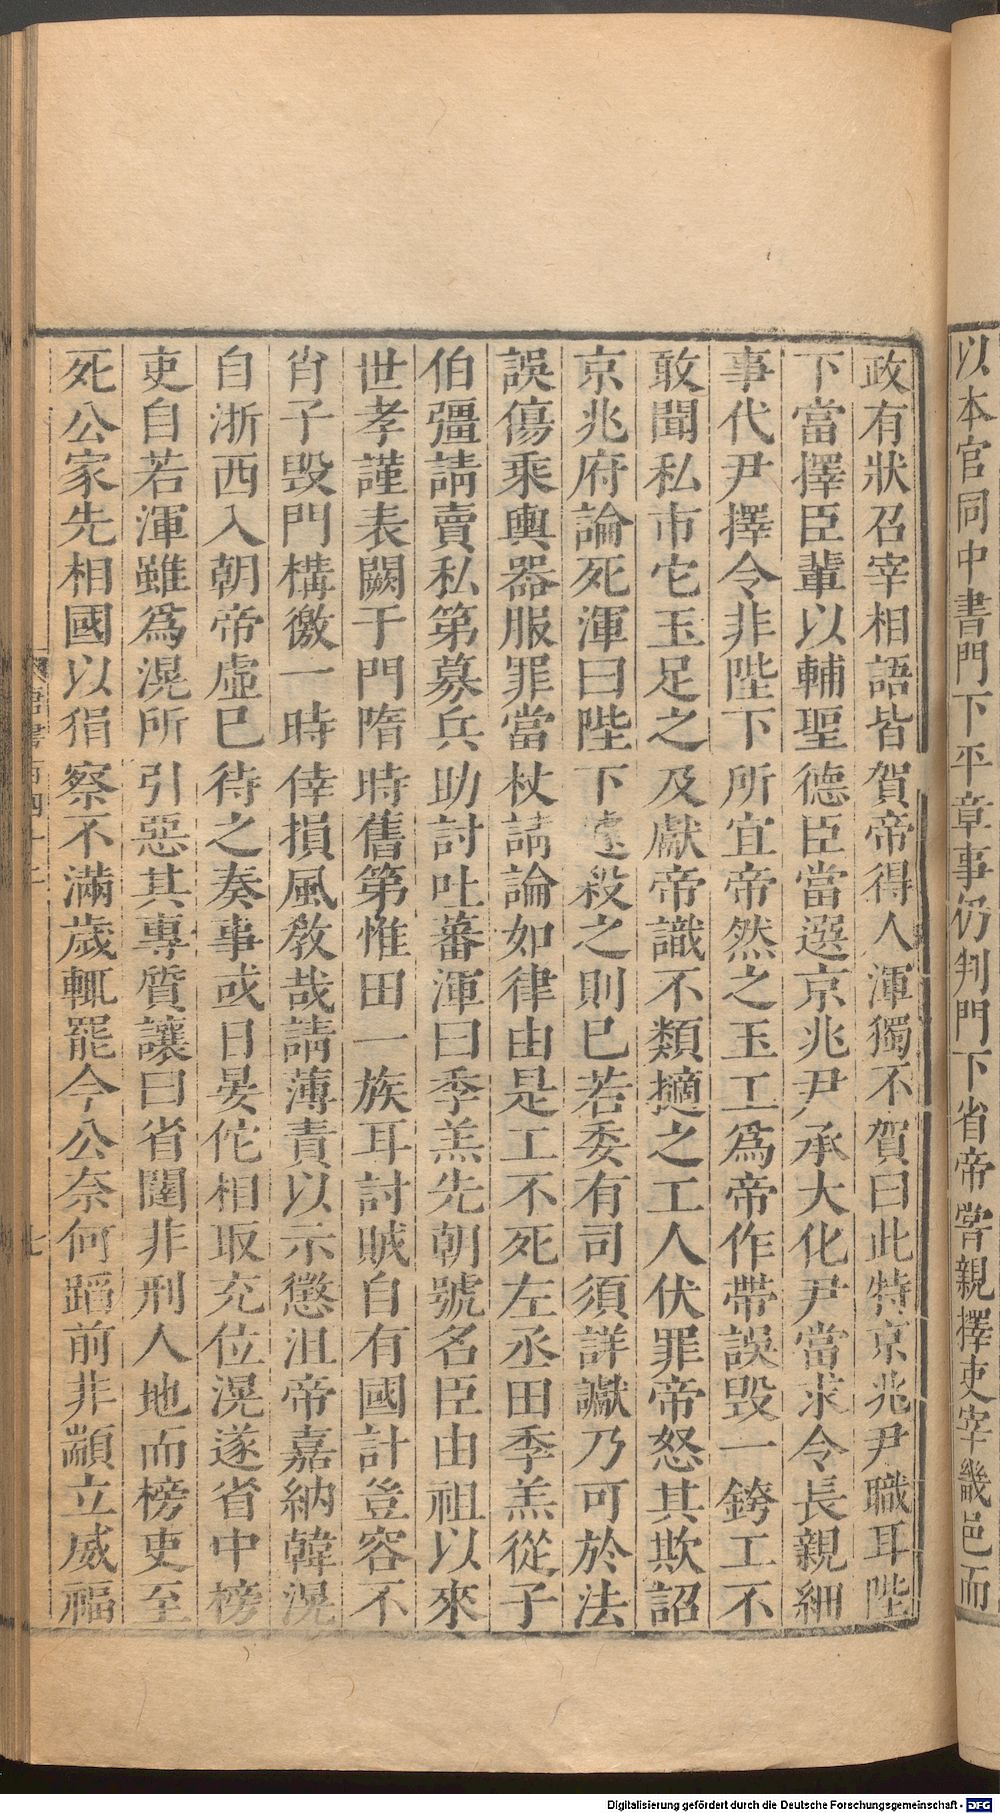 以本官同中書門下平章事仍判門下省帝嘗親擇吏宰畿邑而
政有狀召宰相語皆賀帝得人渾獨不賀曰此特京兆尹職耳陛
下當擇臣輩以輔聖德臣當選京兆尹承大化尹當求令長親細
事代尹擇令非陛下所宜帝然之玉工為帝作帶誤毀一銙工不
敢聞私市它玉足之及獻帝識不類擿之工人伏罪帝怒其欺詔
京兆府論死渾曰陛下遽殺之則已若委有司須詳讞乃可於法
誤傷乘輿器服罪當杖請論如律由是工不死左丞田季羔從子
伯彊請賣私第募兵助討吐蕃渾曰季羔先朝號名臣由祖以來
世孝謹表闕于門隋時舊第惟田一族耳討賊自有國計豈容不
肖子毀門構徼一時倖損風敎哉請薄責以示懲沮帝嘉納韓滉
自浙西入朝帝虛已待之奏事或日晏佗相取充位滉遂省中榜
吏自若渾雖爲滉所引惡其專質讓曰省闥非刑人地而榜吏至
死公家先相國以狷察不滿歲輒罷今公柰何蹈前非顓立威福
唐書
七
Digitalisierung gefördert durch die Deutsche Forschungsgemeinschaft - DFG